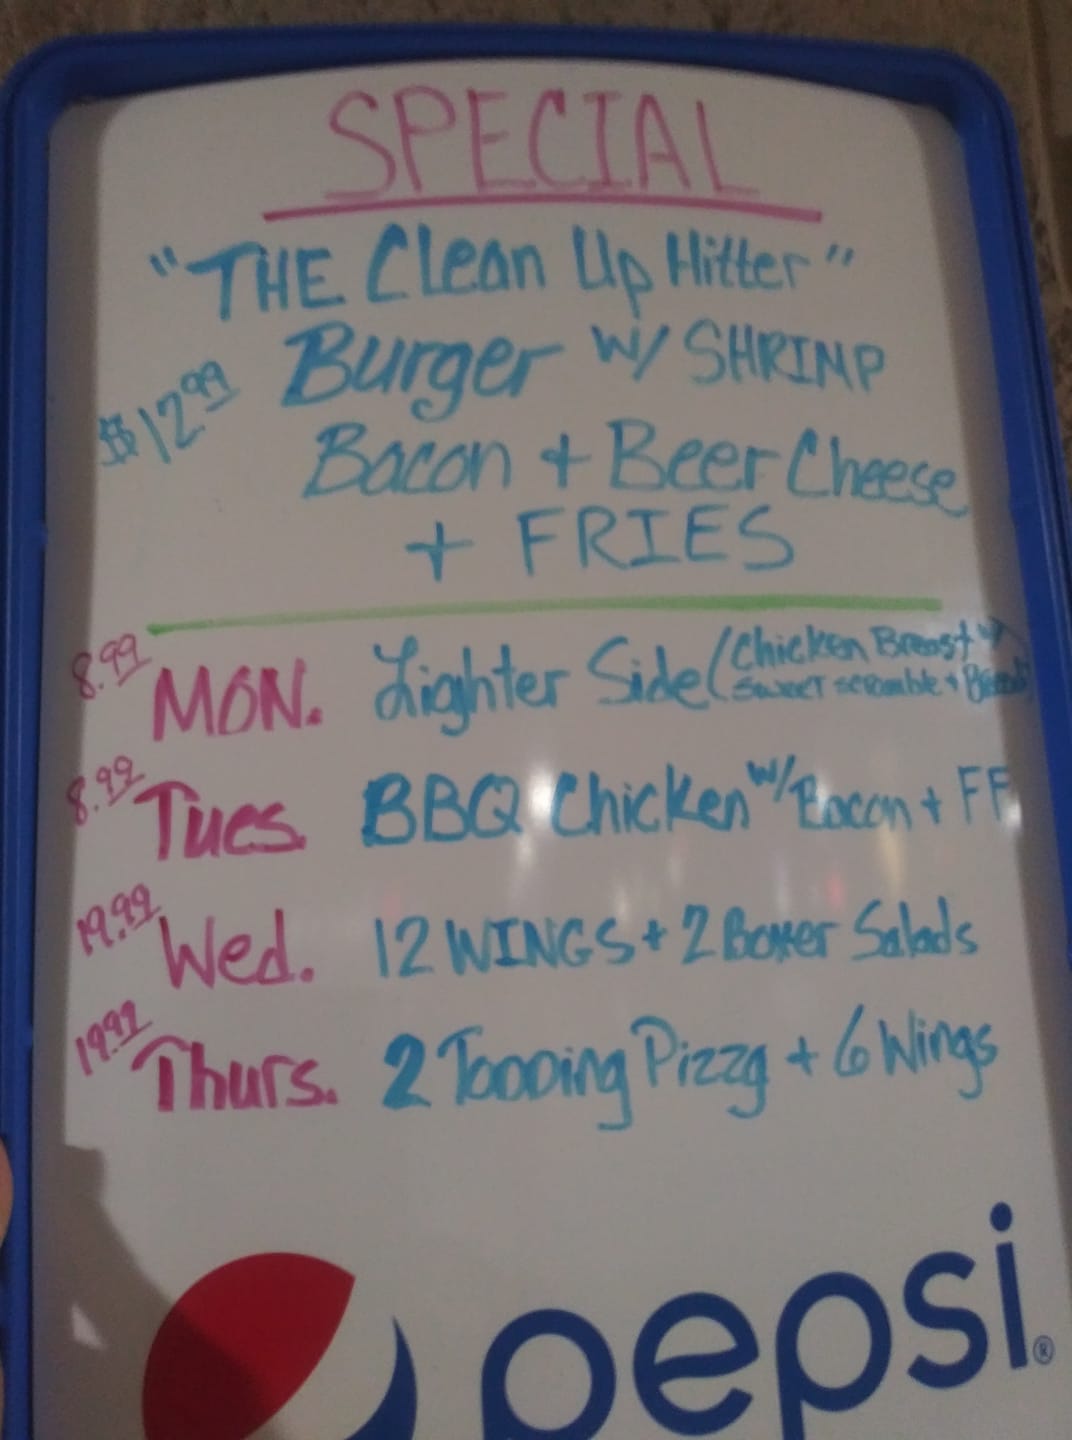 SPECIAL
"THE Clean Up Hitter"
$12.99 Burger w/ SHRIMP
Bacon + Beer Cheese
+ FRIES
8.99 MON. Lighter Side (Chicken Breast w/
sweet scramble + Bread)
8.99 Tues. BBQ Chicken w/ Bacon + FF
19.99 Wed. 12 WINGS + 2 Boxer Salads
19.99 Thurs. 2 Topping Pizza + 6 Wings
pepsi®